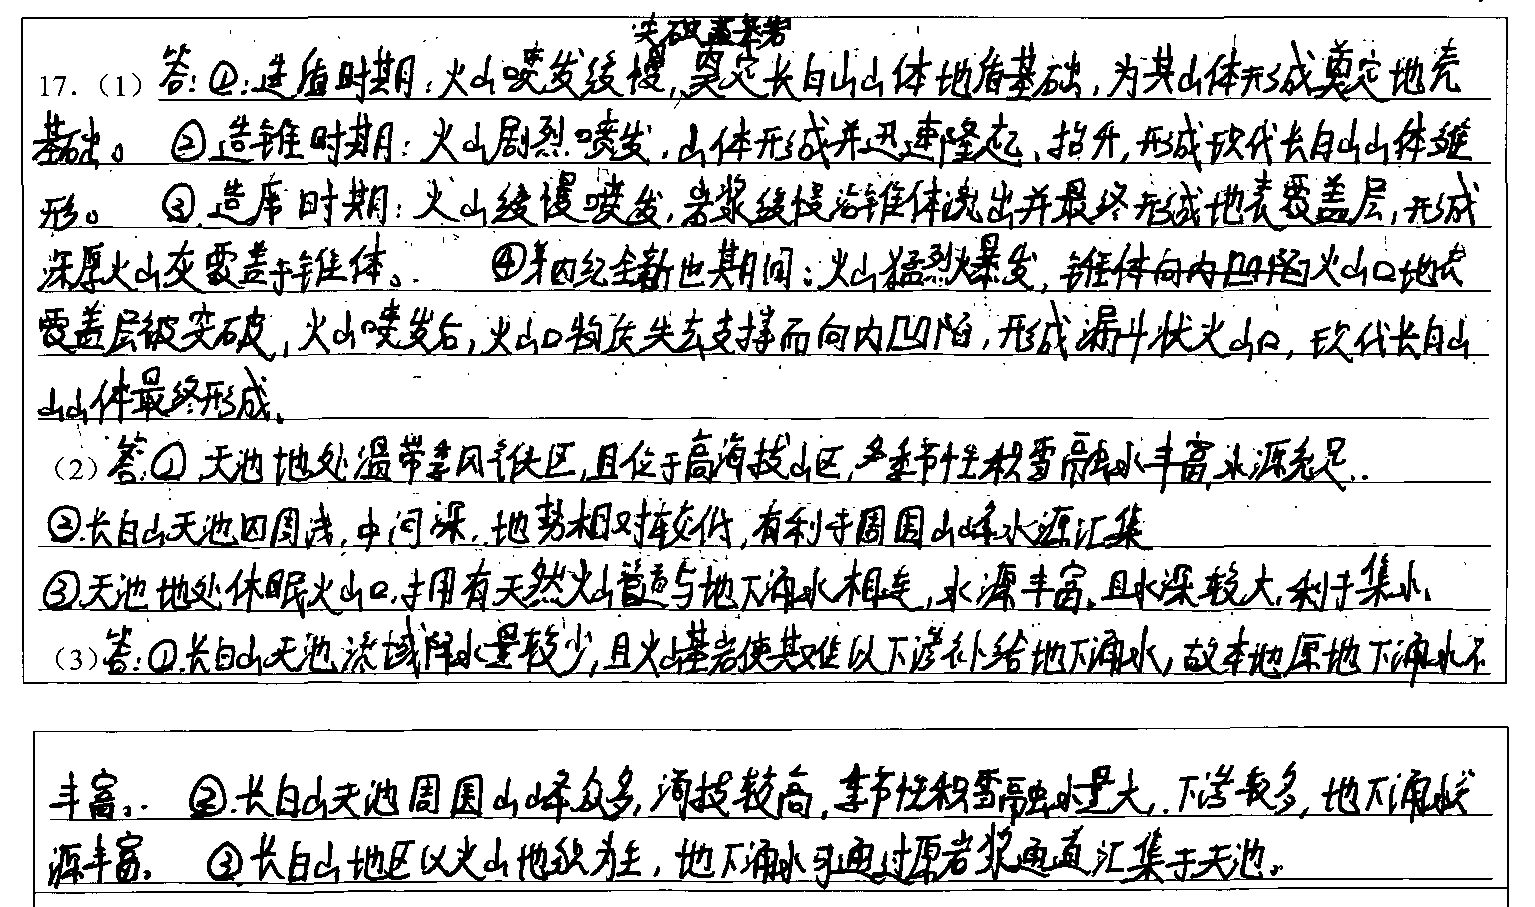 突破盖基岩
17.（1）答：①：造盾时期：火山喷发缓慢，奠定长白山山体地盾基础，为其山体形成奠定地壳
基础。 ②造锥时期：火山剧烈喷发，山体形成并迅速隆起、抬升，形成现代长白山山体锥
形。 ③造席时期：火山缓慢喷发，岩浆缓慢沿锥体流出并最终形成地表覆盖层，形成
深厚火山灰覆盖于锥体。 ④第四纪全新世期间：火山猛烈爆发，锥体向内凹陷火山口地表
覆盖层被突破，火山喷发后，火山口物质失去支撑而向内凹陷，形成漏斗状火山口，现代长白山
山体最终形成。
（2）答：①天池地处温带季风气候区，且位于高海拔山区，多季节性积雪融水丰富，水源充足.
②.长白山天池四周浅，中间深，地势相对较低，有利于周围山峰水源汇集
③天池地处休眠火山口，拥有天然火山管道与地下涌水相连，水源丰富，且水深较大，利于集水.
（3）答：①.长白山天池流域降水量较少，且火山基岩使其难以下渗补给地下涌水，故本地原地下涌水不
丰富. ②.长白山天池周围山峰众多，海拔较高，季节性积雪融水量大，下渗较多，地下涌水
源丰富. ③.长白山地区以火山地貌为主，地下涌水可通过原岩浆通道汇集于天池。